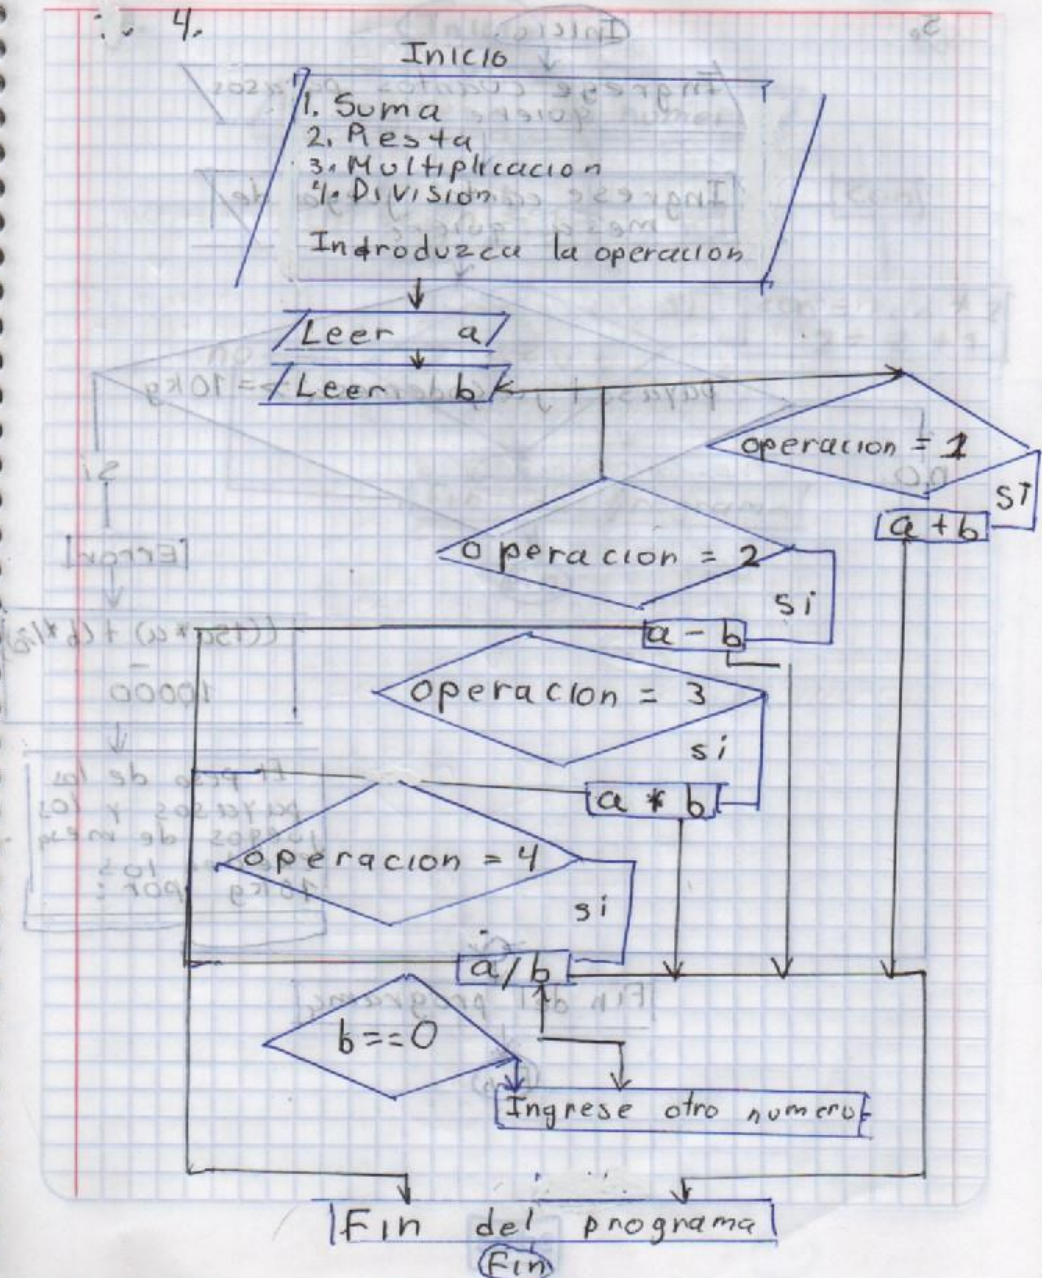 4.
Inicio
1. Suma
2. Resta
3. Multiplicacion
4. División
Introduzca la operacion
Leer a
Leer b
operacion = 1
si
a + b
operacion = 2
si
a - b
operacion = 3
si
a * b
operacion = 4
si
a / b
b == 0
Ingrese otro numero
Fin del programa
Fin